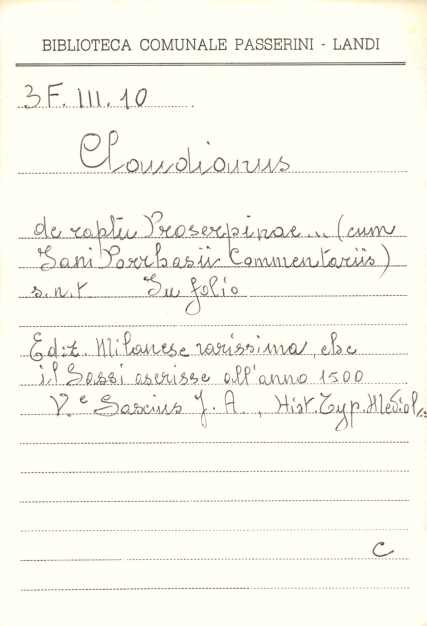 BIBLIOTECA COMUNALE PASSERINI - LANDI
3F. III. 10
Claudianus
de raptu Proserpinae... (cum
Jani Parrhasii Commentariis)
s.n.t. In folio
Ediz. Milanese rarissima, che
il Sassi ascrisse all'anno 1500
V.e Saxius J. A., Hist. Typ. Mediol.
C